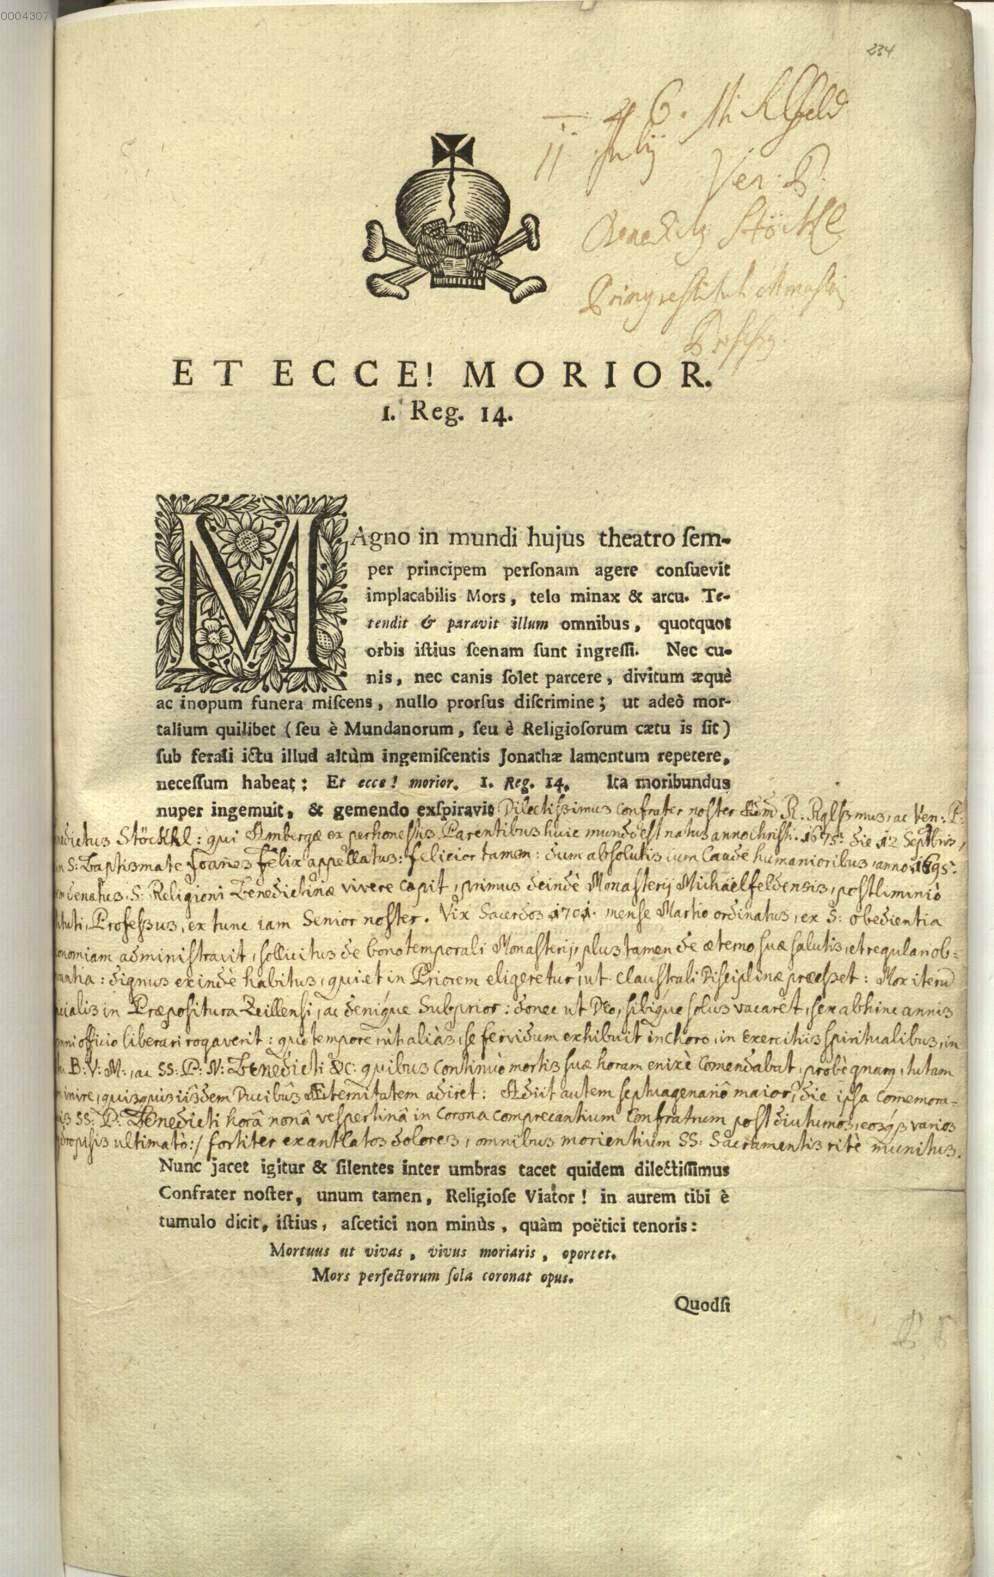 0004307
234
July
Ven: P.
Stöckl
ET ECCE! MORIOR.
1. Reg. 14.
MAgno in mundi hujus theatro ſem-
per principem perſonam agere conſuevit
implacabilis Mors, telo minax & arcu. Te-
tendit & paravit illum omnibus, quotquot
orbis iſtius ſcenam ſunt ingreſſi. Nec cu-
nis, nec canis ſolet parcere, divitum æquè
ac inopum funera miſcens, nullo prorſus diſcrimine; ut adeò mor-
talium quilibet (ſeu è Mundanorum, ſeu è Religioſorum cætu is ſit)
ſub ferali ictu illud altùm ingemiſcentis Jonathæ lamentum repetere,
neceſſum habeat: Et ecce! morior. 1. Reg. 14. Ita moribundus
nuper ingemuit, & gemendo exſpiravit Dilectissimus Confrater noster R. Rglssmus, ac Ven: P:
Stöckhl: qui Ambergæ ex perhonestis Parentibus huic mundo est natus anno christi: 1675: die 12 Septbris,
S: Baptismate Joanes Felix appellatus: felicior tamen: dum absolutis cum laude humanioribus, anno 1695:
S: Religioni Benedictinæ vivere capit, primus deindè Monasterij Michaëlfeldensis, postliminiò
Professus, ex tunc iam Senior noster. Vix Sacerdos 1701. mense Martio ordinatus, ex S: obedientia
administravit, sollicitus de bono temporali Monasterij, plus tamen de æterno suæ salutis, et regulari ob-
dignus exindè habitus, qui et in Priorem eligeretur, ut Claustrali Disciplinæ præesset: Mox iterū
in Præpositura Zeillensi, ac deniq́ue Subprior: donec ut Deo, sibique solus vacaret, sex abhinc annis
officio liberari rogaverit: quo tempore, ùt aliàs, se fervidum exhibuit in choro, in exercitiis spiritualibus, in
B: V: M:, ac SS: P: N: Benedicti &c: quibus continuò mortis suæ horam enixè comendabat, probè gnarus, tutam
quisquis iisdem Ducibus Æternitatem adiret: Adiit autem septuagenariô maior, die ipsa comemora-
SS: P: Benedicti horâ nonâ vespertinâ in Corona comprecantium Confratrum post diutunos, eosq́; varios
ultimatò:/ fortiter exantlatos dolores, omnibus morientium SS: Sacramentis ritè munitus.
Nunc jacet igitur & ſilentes inter umbras tacet quidem dilectiſſimus
Confrater noſter, unum tamen, Religioſe Viator! in aurem tibi è
tumulo dicit, iſtius, aſcetici non minùs, quàm poëtici tenoris:
Mortuus ut vivas, vivus moriaris, oportet.
Mors perfectorum ſola coronat opus.
Quodſi